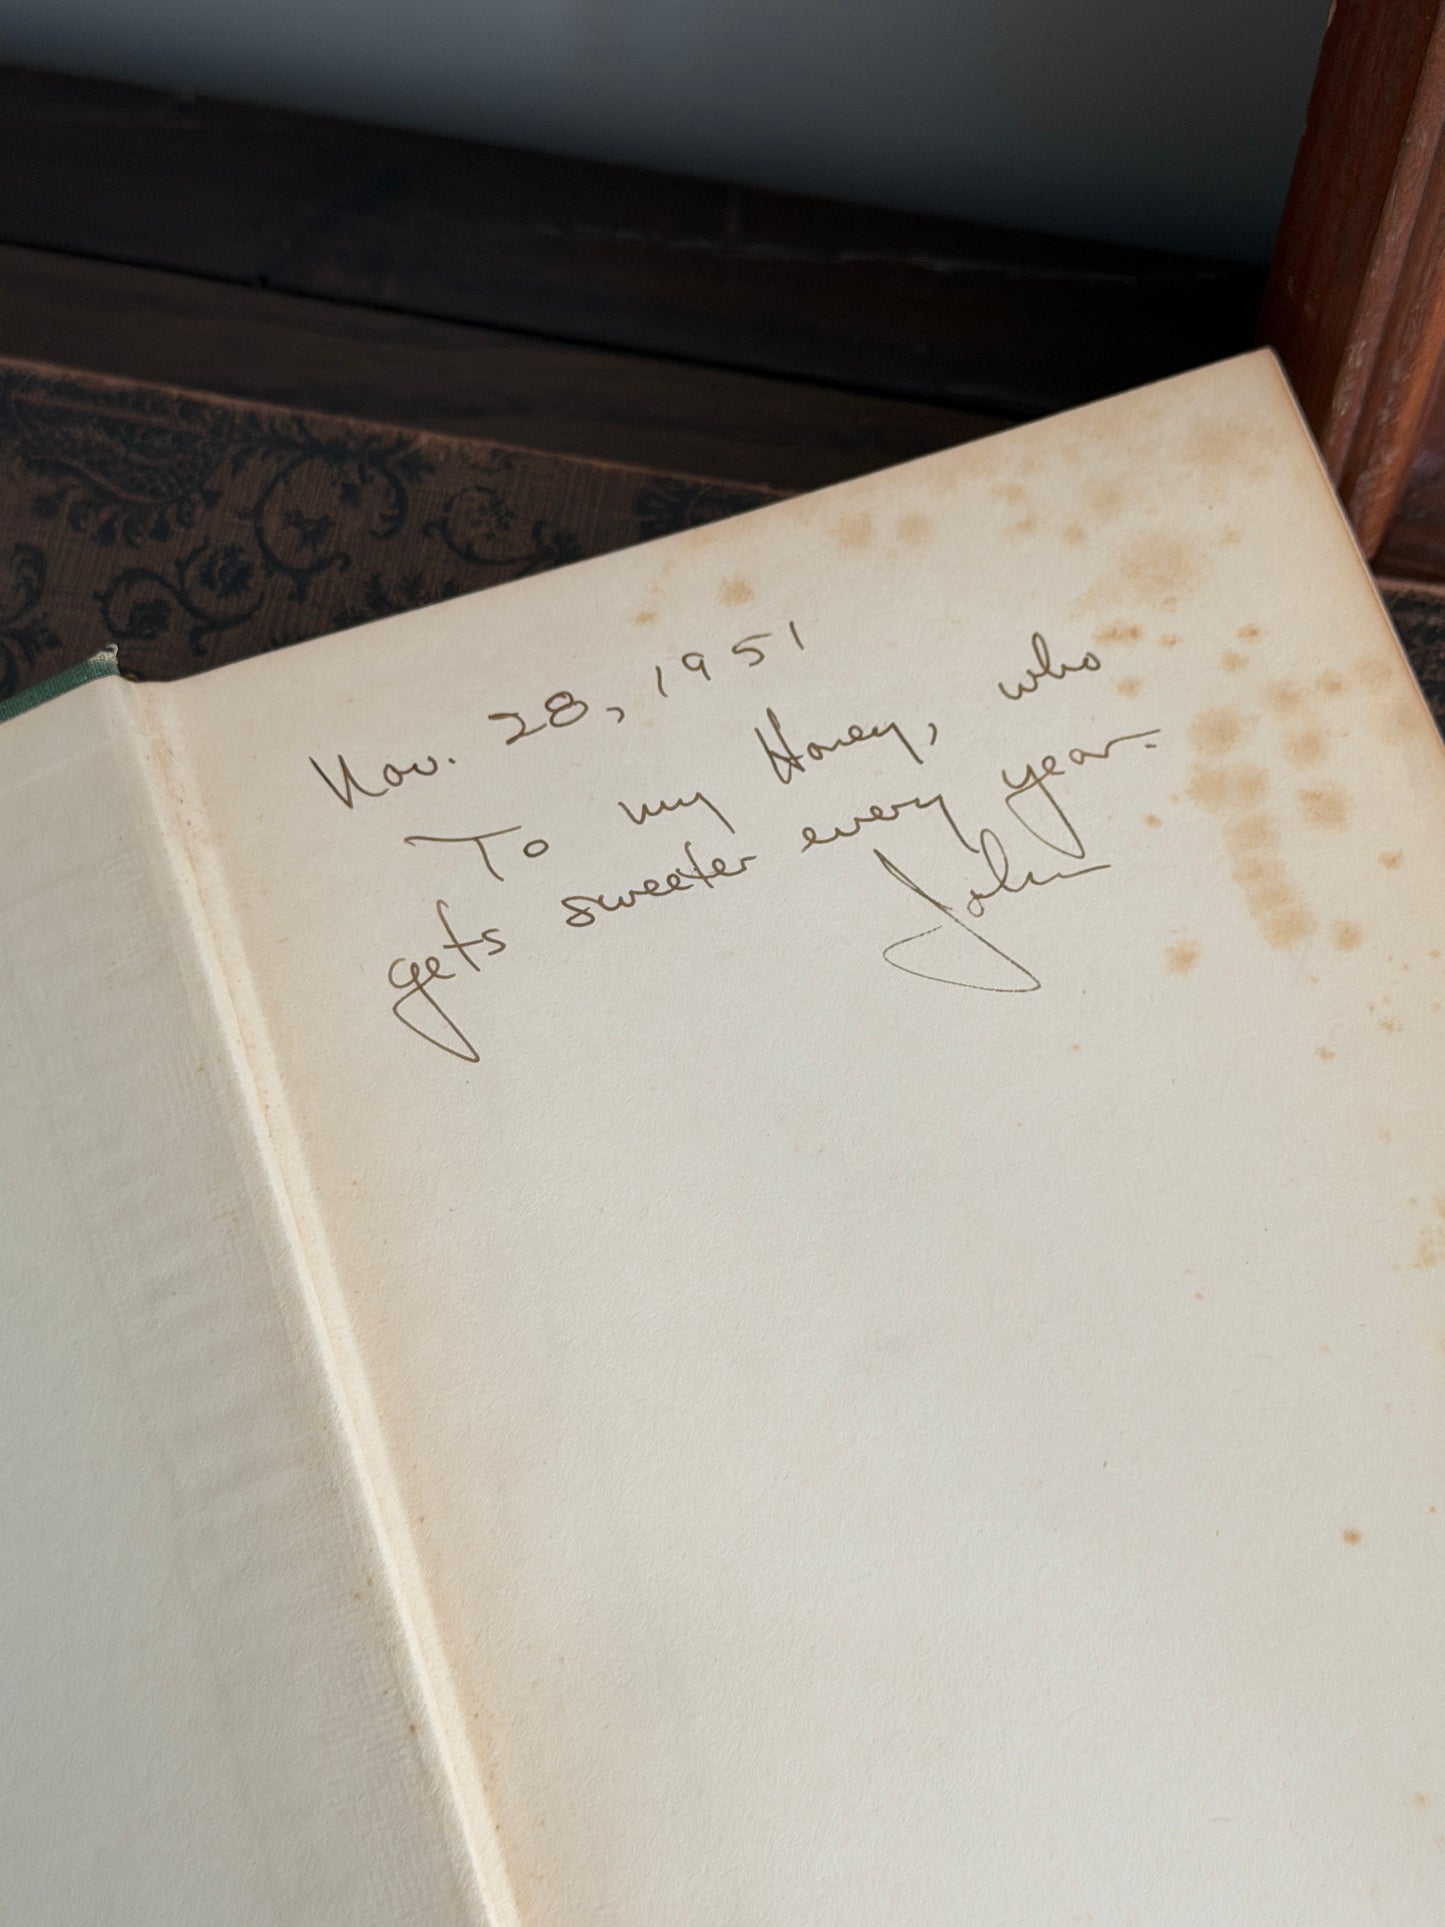 Nov. 28, 1951
To my Honey, who
gets sweeter every year.
John